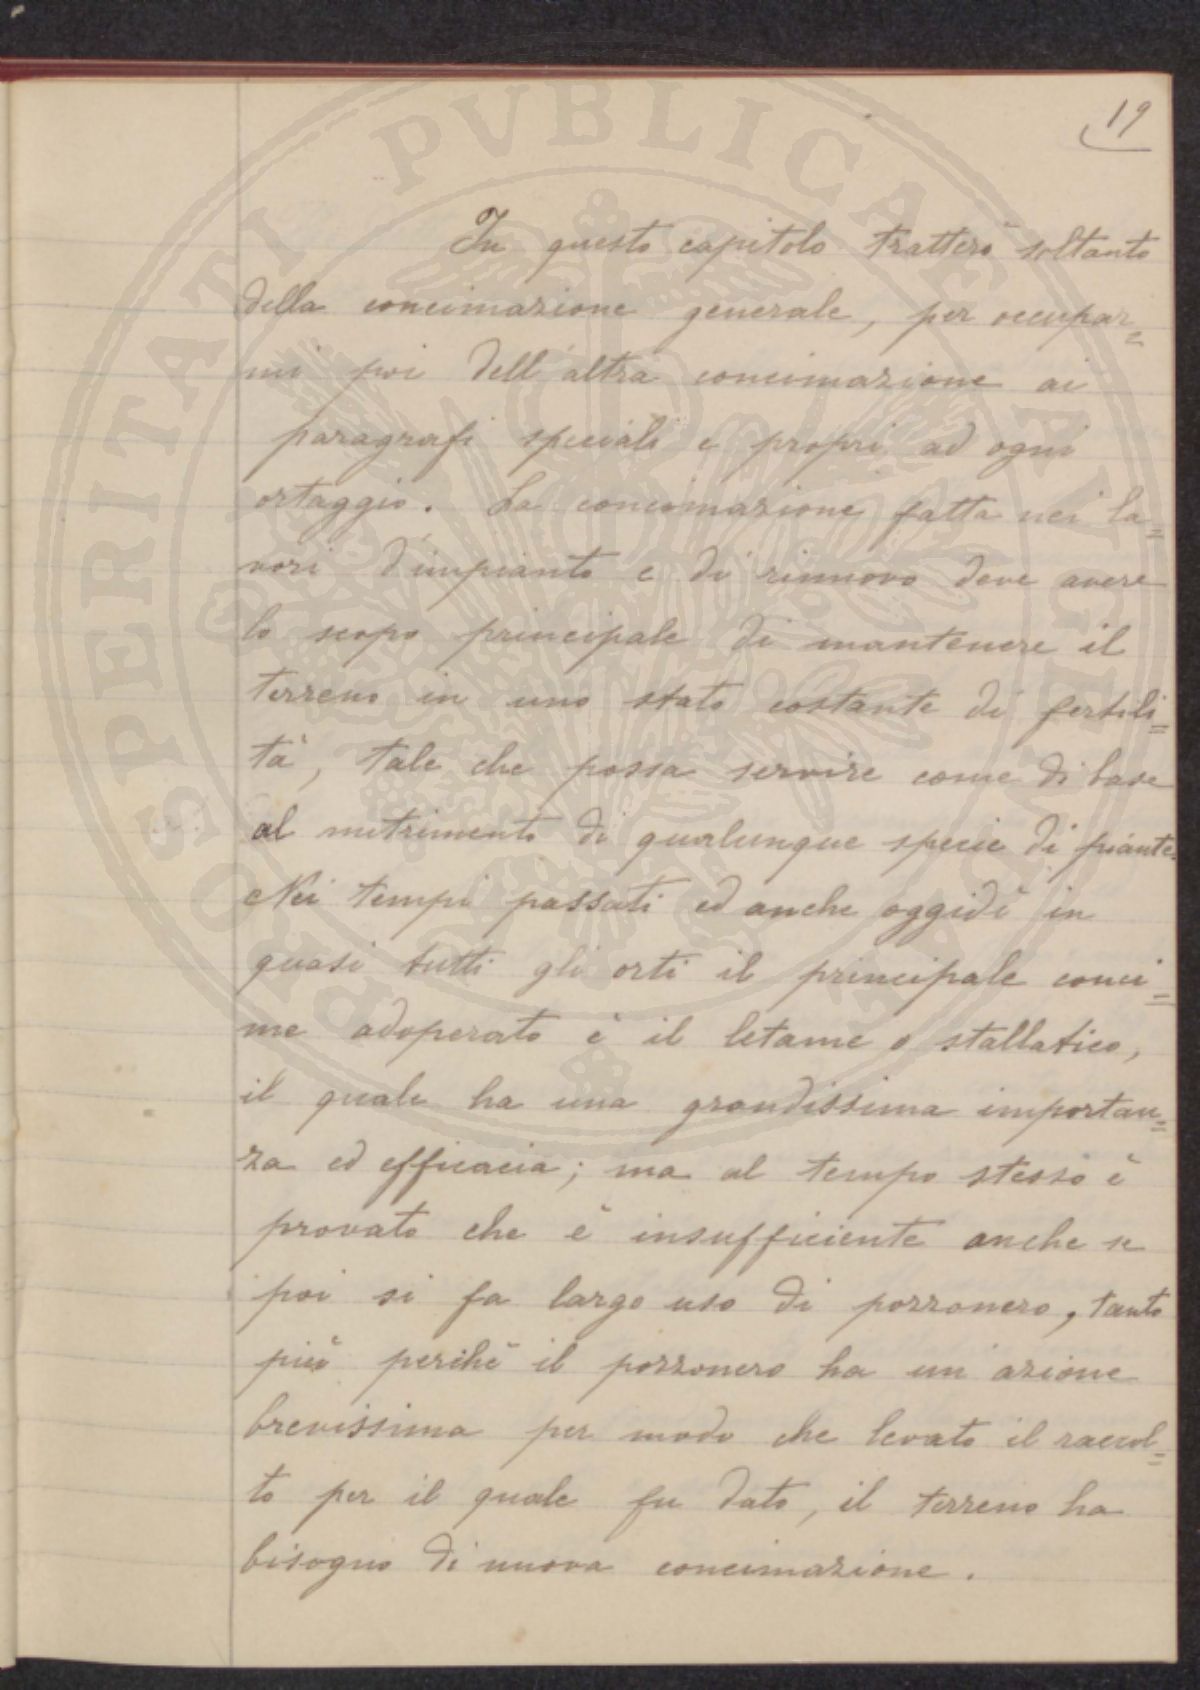 19
In questo capitolo tratterò soltanto
della concimazione generale, per occupar=
mi poi dell'altra concimazione ai
paragrafi speciali e propri ad ogni
ortaggio. La concimazione fatta nei la=
vori d'impianto e di rinnovo deve avere
lo scopo principale di mantenere il
terreno in uno stato costante di fertili=
tà, tale che possa servire come di base
al nutrimento di qualunque specie di piante.
Nei tempi passati ed anche oggidì in
quasi tutti gli orti il principale conci=
me adoperato è il letame o stallatico,
il quale ha una grandissima importan=
za ed efficacia; ma al tempo stesso è
provato che è insufficiente anche se
poi si fa largo uso di pozzonero, tanto
più perchè il pozzonero ha un'azione
brevissima per modo che levato il raccol=
to per il quale fu dato, il terreno ha
bisogno di nuova concimazione.
PROSPERITATI PVBLICAE AVGENDAE